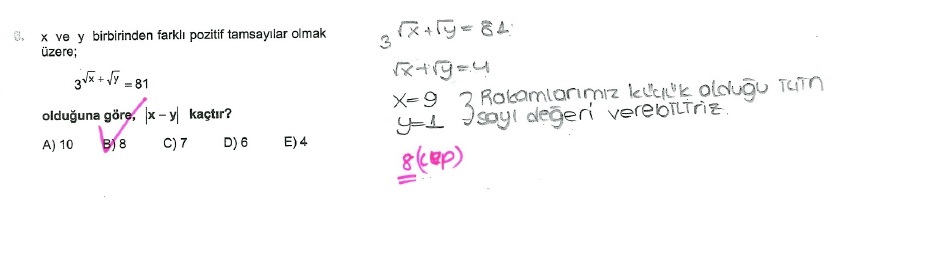 6. x ve y birbirinden farklı pozitif tamsayılar olmak
üzere;
3^{√x + √y} = 81
olduğuna göre, |x – y| kaçtır?
A) 10 B) 8 C) 7 D) 6 E) 4
3^{√x+√y} = 81
√x+√y=4
x=9
y=1
} Rakamlarımız küçük olduğu için
sayı değeri verebiliriz.
8 (cep)